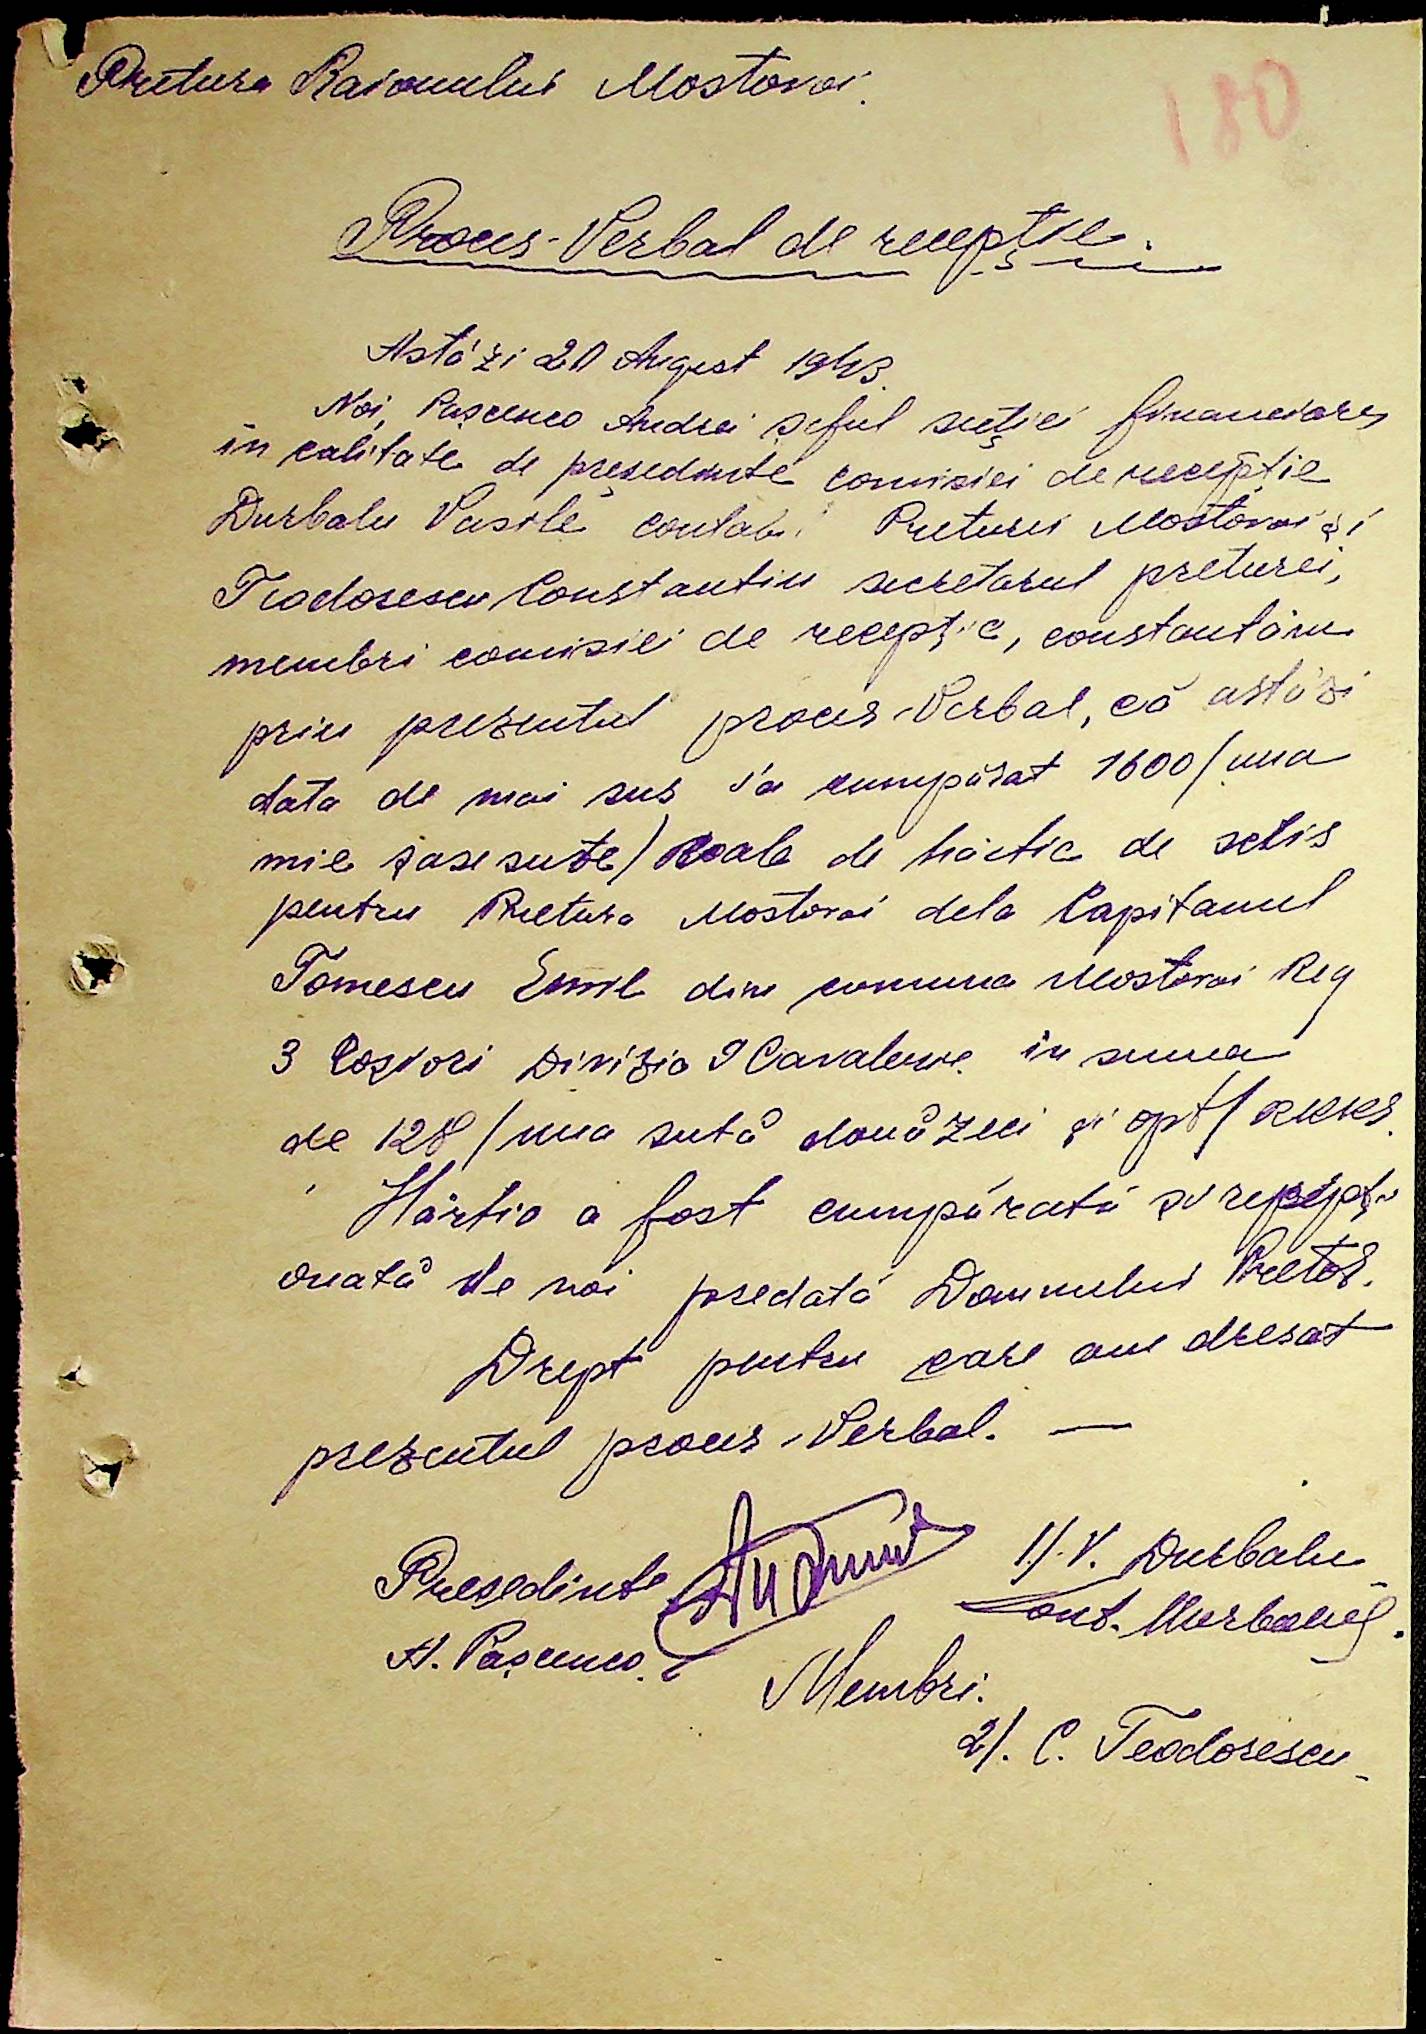 Pretura Raionului Mostovoi.
180
Proces-Verbal de recepție.
Astăzi 20 August 1943.
Noi, Pașcenco Andrei șeful secției financiare,
în calitate de președinte comisiei de recepție
Durbalu Vasile contabil Preturei Mostovoi și
Teodorescu Constantin secretarul preturei,
membri comisiei de recepție, constantăm
prin prezentul proces-Verbal, că astăzi
data de mai sus s'a cumpărat 1600/una
mie șase sute/ Coale de hârtie de scris
pentru Pretura Mostovoi dela Capitanul
Tomescu Emil din comuna Mostovoi Reg
3 Roșiori Divizia 9 Cavalerie în suma
de 128/una sută douăzeci și opt/ RKKS.
Hârtia a fost cumpărată și recepți
onată de noi predată Domnului Pretor.
Drept pentru care am dresat
prezentul proces-Verbal. —
Președinte
A. Pașcenco.
1/. V. Durbalu
Cont.
Membri:
2/. C. Teodorescu